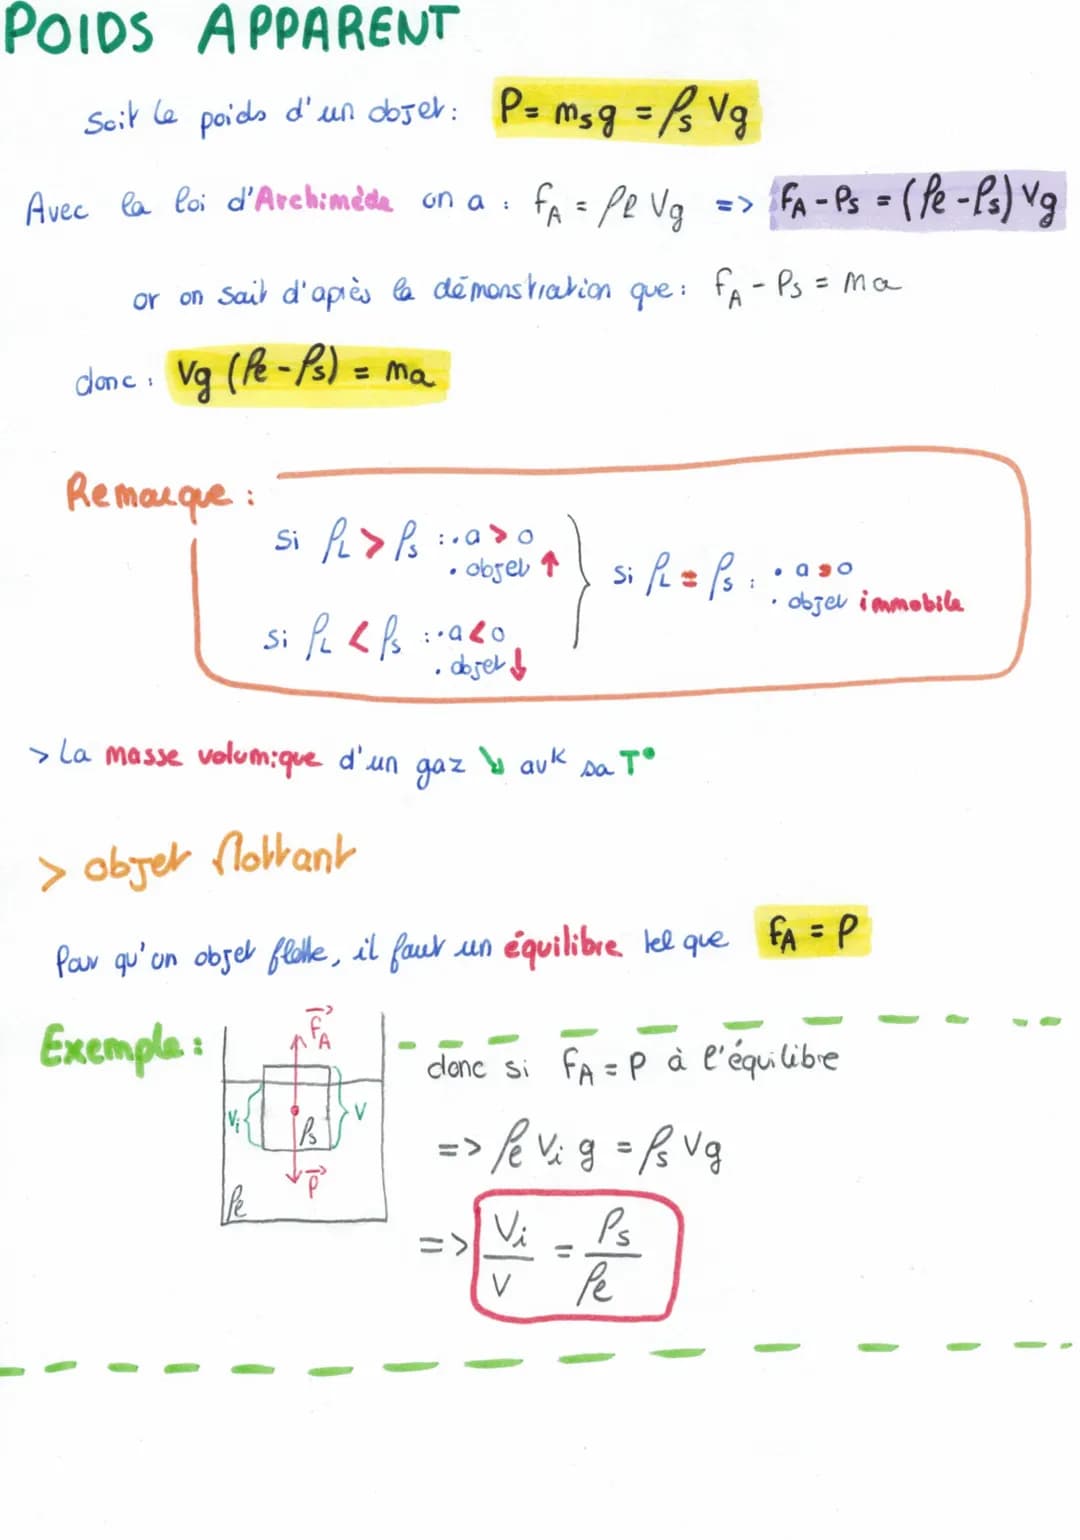 POIDS APPARENT
Soit le poids d'un objet : P = msg = ρs Vg
Avec la loi d'Archimède on a : FA = ρl Vg => FA - Ps = (ρe - ρs) Vg
or on sait d'après la démonstration que : FA - Ps = ma
donc : Vg (ρe - ρs) = ma
Remarque :
si ρL > ρs : . a > 0
. objet ↑
si ρL = ρs : . a = 0
. objet immobile
si ρL < ρs : . a < 0
. objet ↓
> La masse volumique d'un gaz ↘ avk sa T°
> objet flottant
Pour qu'un objet flotte, il faut un équilibre tel que FA = P
Exemple :
FA
Vi
V
ρs
P
ρe
donc si FA = P à l'équilibre
=> ρe Vi g = ρs Vg
=> Vi/V = ρs/ρe